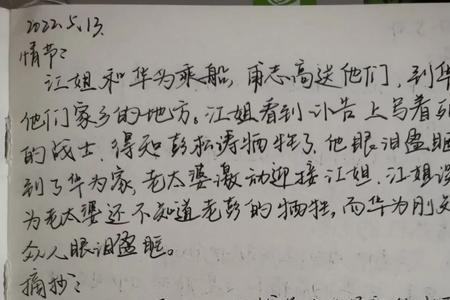 2022.5.13.
情节:
江姐和华为乘船,甫志高送他们,到华
他们家乡的地方,江姐看到讣告上写着
的战士,得知彭松涛牺牲了,他眼泪盈眶
到了华为家,老太婆激动迎接江姐,江姐
为老太婆还不知道老彭的牺牲,而华为刚
众人眼泪盈眶。
摘抄: